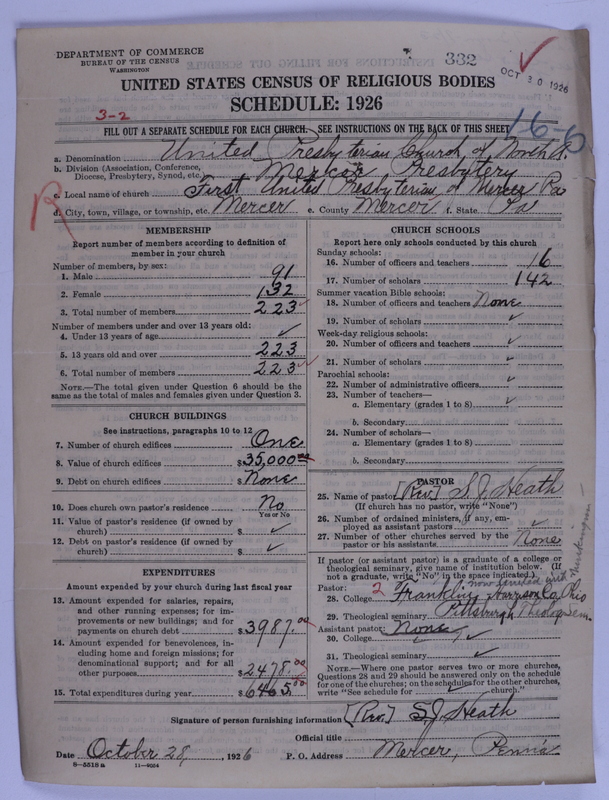 DEPARTMENT OF COMMERCE
BUREAU OF THE CENSUS
WASHINGTON
332
OCT 30 1926
UNITED STATES CENSUS OF RELIGIOUS BODIES
SCHEDULE: 1926
3-2
16-6
FILL OUT A SEPARATE SCHEDULE FOR EACH CHURCH. SEE INSTRUCTIONS ON THE BACK OF THIS SHEET
a. Denomination United Presbyterian Church of North A.
b. Division (Association, Conference, Diocese, Presbytery, Synod, etc.) Mercer Presbytery
c. Local name of church First United Presbyterian of Mercer Pa
d. City, town, village, or township, etc. Mercer e. County Mercer f. State Pa
R
MEMBERSHIP
Report number of members according to definition of
member in your church
Number of members, by sex:
1. Male 91
2. Female 132
3. Total number of members 223
Number of members under and over 13 years old:
4. Under 13 years of age ✓
5. 13 years old and over 223
6. Total number of members 223
NOTE.—The total given under Question 6 should be
same as the total of males and females given under Question 3.
CHURCH BUILDINGS
See instructions, paragraphs 10 to 12
7. Number of church edifices One
8. Value of church edifices $35,000.00
9. Debt on church edifices $None
10. Does church own pastor's residence No
Yes or No
11. Value of pastor's residence (if owned by
church) $ ✓
12. Debt on pastor's residence (if owned by
church) $ ✓
EXPENDITURES
Amount expended by your church during last fiscal year
13. Amount expended for salaries, repairs,
and other running expenses; for im-
provements or new buildings; and for
payments on church debt $3987.00
14. Amount expended for benevolences, in-
cluding home and foreign missions; for
denominational support; and for all
other purposes $2478.00
15. Total expenditures during year $6465.00
CHURCH SCHOOLS
Report here only schools conducted by this church
Sunday schools:
16. Number of officers and teachers 16
17. Number of scholars 142
Summer vacation Bible schools:
18. Number of officers and teachers None
19. Number of scholars ✓
Week-day religious schools:
20. Number of officers and teachers ✓
21. Number of scholars ✓
Parochial schools:
22. Number of administrative officers ✓
23. Number of teachers—
a. Elementary (grades 1 to 8) ✓
b. Secondary
24. Number of scholars—
a. Elementary (grades 1 to 8)
b. Secondary
PASTOR
25. Name of pastor [Rev] S. J. Heath
(If church has no pastor, write "None")
26. Number of ordained ministers, if any, em-
ployed as assistant pastors ✓
27. Number of other churches served by the
pastor or his assistants None
If pastor (or assistant pastor) is a graduate of a college or
theological seminary, give name of institution below. (If
not a graduate, write "No" in the space indicated.)
now united with Muskingum
Pastor:
28. College 2 Franklin, Harrison Co, Ohio
29. Theological seminary Pittsburgh Theolog. Sem.
Assistant pastor: None
30. College ✓
31. Theological seminary ✓
NOTE.—Where one pastor serves two or more churches,
Questions 28 and 29 should be answered only on the schedule
for one of the churches; on the schedules for the other churches,
write "See schedule for church."
Signature of person furnishing information [Rev.] S. J. Heath
Official title
Date October 28, 1926 P. O. Address Mercer, Penn'a
8—5518 a 11—9024